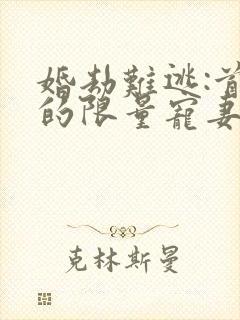 婚劫難逃:首
的限量寵妻
克林斯曼